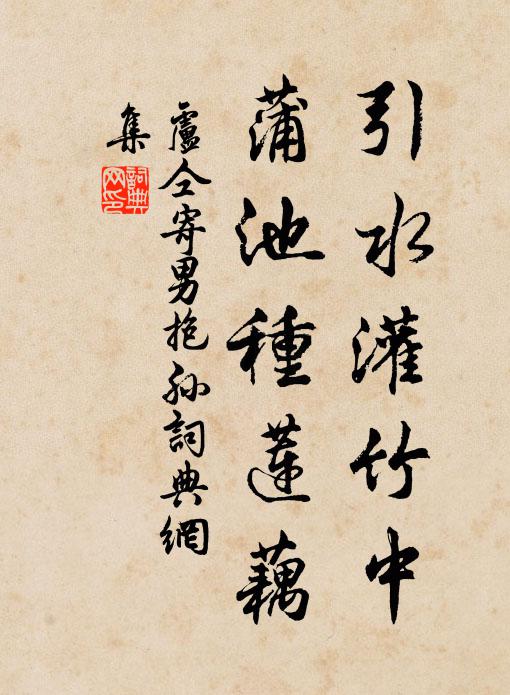 引水灌竹中
蒲池種蓮藕
盧仝寄男抱孫詞典網
集
詞典
网印